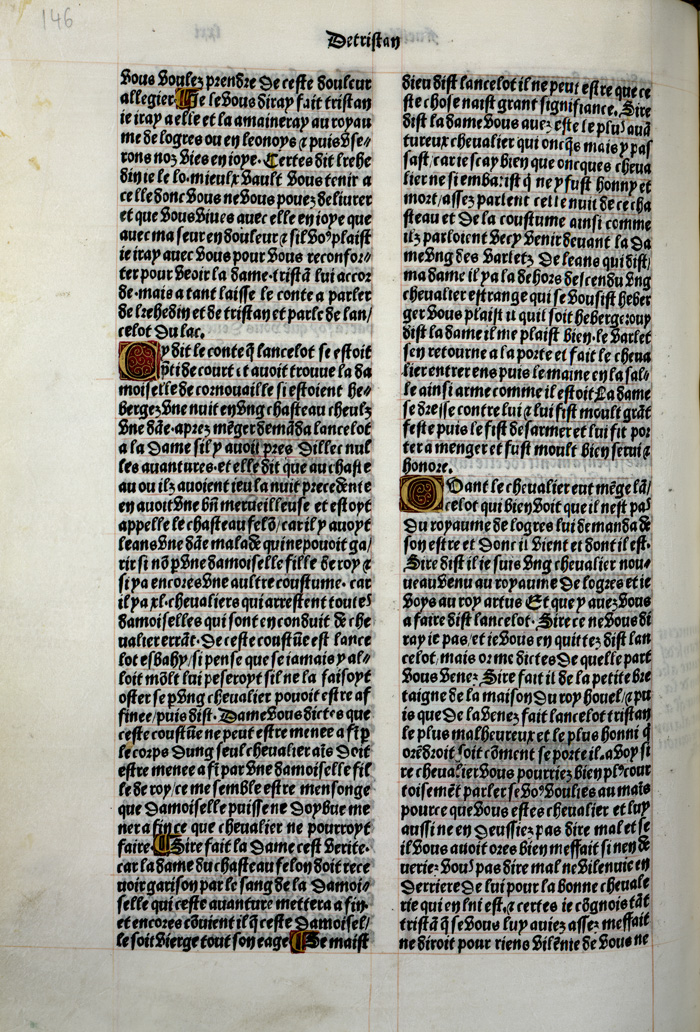 146
De tristan
vous voulez prendre de ceste douleur
allegier. Je le vous diray fait tristan
ie iray a elle et la amaineray au royau
me de logres ou en leonoys ⁊ puis vse/
rons noz vies en ioye. Certes dit kehe
din ie le lo. mieulx vault vous tenir a
celle donc vous ne vous pouez deliurer
et que vous viues auec elle en ioye que
auec ma seur en douleur ⁊ sil voꝰ plaist
ie iray auec vous pour vous reconfor/
ter pour veoir la dame. tristã lui accor
de. mais a tant laisse le conte a parler
de kehedin et de tristan et parle de lan/
celot du lac.
Cy dit le conte q̃ lancelot se estoit
p̃ti de court ⁊ auoit trouue la da
moiselle de cornouaille si estoient he/
bergez vne nuit en vng chasteau cheulz
vne dãe. aprez mẽger demãda lancelot
a la dame sil y auoit pres dillec nul
les auantures. et elle dit que au chaste
au ou ilz auoient ieu la nuit precedente
en auoit vne bñ merueilleuse et estoyt
appelle le chasteau felõ/ car il y auoyt
leans vne dãe malade qui ne pouoit ga/
rir si nõ p̃ vne damoiselle fille de roy ⁊
si ya encores vne aultre coustume. car
il ya xl. cheualiers qui arrestent toutes
damoiselles qui sont en conduit de che
ualier errãt. De ceste coustũe est lance
lot esbahy/ si pense que se iamais y al/
loit mõlt lui peseroyt sil ne la faisoyt
oster se p̃ vng cheualier pouoit estre af
finee/ puis dist. Dame vous dictes que
ceste coustũe ne peut estre menee a fi p̃
le corps dung seul cheualier ais doit
estre menee a fi par vne damoiselle fil
le de roy/ ce me semble estre mensonge
que damoiselle puisse ne doybue me
ner a fin ce que cheualier ne pourroyt
faire. Sire fait la dame cest verite.
car la dame du chasteau felon doit rece
uoir garison par le sang de la damoi/
selle qui ceste auanture mettera a fin.
et encores cõuient il q̃ ceste damoisel/
le soit vierge tout son eage. Se maist
dieu dist lancelot il ne peut estre que ce
ste chose naist grant signifiance. Sire
dist la dame vous auez este le plus auã
tureux cheualier qui oncq̃s mais y pas
sast/ car ie scay bien que oncques cheua
lier ne si embatist q̃ ne y fust honny et
mort/ assez parlent celle nuit de ce cha
steau et de la coustume ainsi comme
ilz parloient vecy venir deuant la da
me vng des varletz de leans qui dist/
ma dame il ya la dehors descendu vng
cheualier estrange qui se vousist heber
ger vous plaist il quil soit heberge: ouy
dist la dame il me plaist bien. le varlet
sen retourne a la porte et fait le cheua
lier entrer ens puis le maine en la sal/
le ainsi arme comme il estoit. La dame
se dresse contre lui ⁊ lui fist moult grãt
feste puis le fist desarmer et lui fit por
ter a menger et fust moult bien serui ⁊
honore.
Quant le cheualier eut mẽge lã/
celot qui bien voit que il nest pas
du royaume de logres lui demanda de
son estre et donc il vient et dont il est.
Sire dist il ie suis vng cheualier nou/
ueau venu au royaume de logres et ie
voys au roy artus. Et que y auez vous
a faire dist lancelot. Sire ce ne vous di
ray ie pas. et ie vous en quittez dist lan
celot. mais or me dictes de quelle part
vous venez. Sire fait il de la petite bre
taigne de la maison du roy houel/ ⁊ pu
is que de la venez fait lancelot tristan
le plus malheureux et le plus honni q̃
orẽdroit soit cõment se porte il. a voy si
re cheualier vous pourriez bien plꝰ cour
toisemẽt parler se voꝰ vouliez au mais
pource que vous estes cheualier et luy
aussi ne en deussiez pas dire mal et se
il vous auoit ores bien meffait si nen de
ueriez vous pas dire mal ne vilenuie en
derriere de lui pour la bonne cheuale
rie qui en lui est. ⁊ certes ie cõgnois tãt
tristã q̃ se vous luy auiez assez meffait
ne diroit pour riens vilẽnie de vous ne